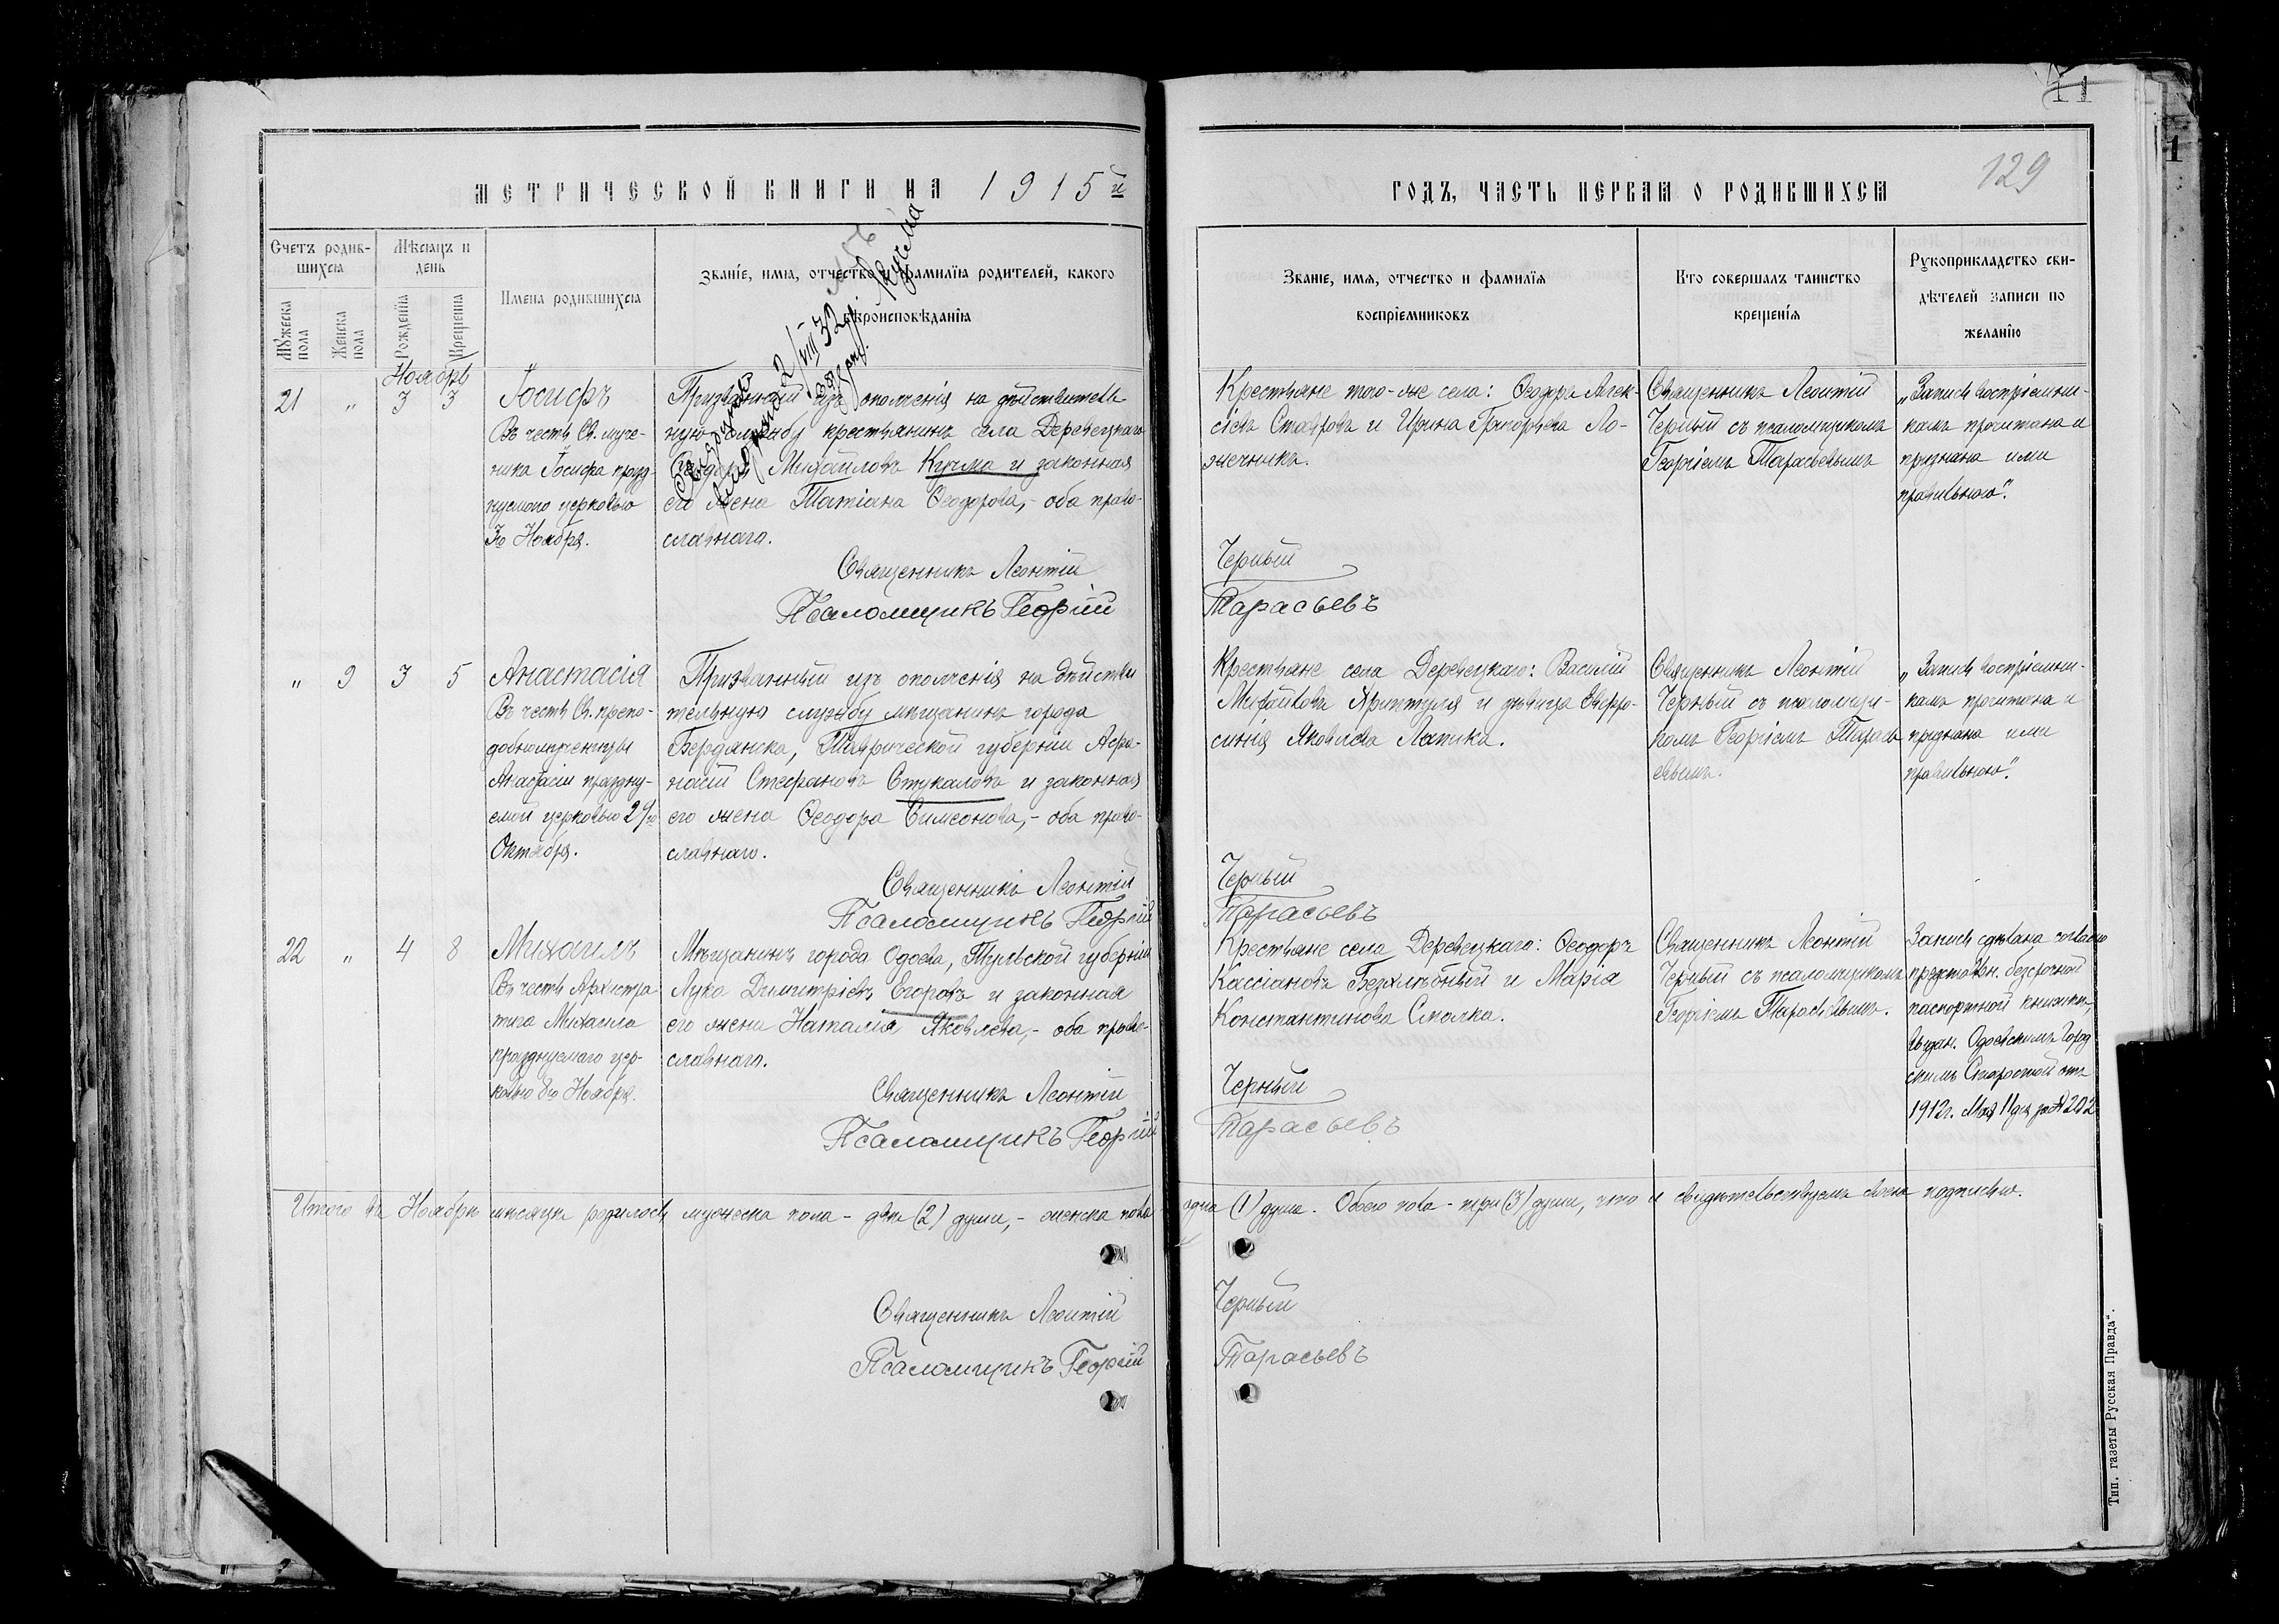 11
129
1
МЕТРИЧЕСКОЙ КНИГИ НА 1915й
ГОДЪ, ЧАСТЬ ПЕРВАЯ О РОДИВШИХСЯ
Счетъ родив-
шихся
Мѣсяцъ и
день
Имена родившихся
Званіе, имя, отчество и фамилія родителей, какого
вѣроисповѣданія
Мужеска
пола
Женска
пола
Рожденія
Крещенія
Званіе, имя, отчество и фамилія
воспріемниковъ
Кто совершалъ таинство
крещенія
Рукоприкладство сви-
дѣтелей записи по
желанію
Ноябрь
21 „ 3 3
Іосифъ
Въ честь Св. муче-
ника Іосифа празд-
нуемого церковью
3го Ноября.
Призванный изъ ополченія на дѣйствитель-
ную службу крестьянинъ села Деревецкаго
Ѳеодоръ Михайловъ Кучма и законная
его жена Татіана Ѳеодорова, - оба право-
славнаго.
2/VIII 32
Кучма
Священникъ Леонтій
Псаломщикъ Георгій
Крестьяне того-же села: Ѳеодоръ Алек-
сіевъ Столровъ и Ирина Григорьева Ло-
жечника.
Черный
Тарасьевъ
Священникъ Леонтій
Черный съ псаломщикомъ
Георгіемъ Тарасьевымъ
„Запись воспріемни-
камъ прочитана и
признана ими
правильного".
„ 9 3 5
Анастасія
Въ честь Св. препо-
добномученицы
Анастасіи праздну-
емой церковью 29го
Октября.
Призванный изъ ополченія на дѣйстви-
тельную службу мѣщанинъ города
Бердянска, Таврической губерніи Аѳа-
насій Стефановъ Стукаловъ и законная
его жена Ѳеодора Симеонова, - оба право-
славнаго.
Священникъ Леонтій
Псаломщикъ Георгій
Крестьяне села Деревецкаго: Василій
Михайловъ Хриптуля и дѣвица Евфро-
синія Яковлева Лапика.
Черный
Тарасьевъ
Священникъ Леонтій
Черный съ псаломщи-
комъ Георгіемъ Тарась-
евымъ.
„Запись воспріемни-
камъ прочитана и
признана ими
правильного".
22 „ 4 8
Михаилъ
Въ честь Архистра-
тига Михаила
празднуемаго цер-
ковью 8го Ноября.
Мѣщанинъ города Одоева, Тульской губерніи
Лука Димитріевъ Егоровъ и законная
его жена Наталія Яковлева, - оба право-
славнаго.
Священникъ Леонтій
Псаломщикъ Георгій
Крестьяне села Деревецкаго: Ѳеодоръ
Кассіановъ Безхлѣбный и Марія
Константинова Смолка.
Черный
Тарасьевъ
Священникъ Леонтій
Черный съ псаломщикомъ
Георгіемъ Тарасьевымъ.
Запись сдѣлана согласно
представлен. безсрочной
паспортной книжки,
выдан. Одоевскимъ Город-
скимъ Старостой отъ
1912г. Мая 11 дня за № 202
Итого въ Ноябрѣ мѣсяцѣ родилось мужеска пола - двѣ (2) души, - женска пола одна (1) душа. Обоего пола - три (3) души, что и свидѣтельствуемъ своею подписью.
Священникъ Леонтій Черный
Псаломщикъ Георгій Тарасьевъ
Тип. газеты "Русская Правда".